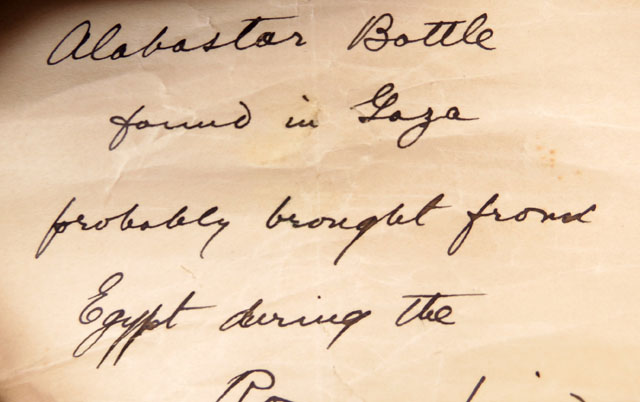 Alabastar Bottle
found in Gaza
probably brought from
Egypt during the